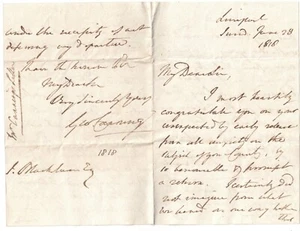 under the necessity of not
deferring my departure.
I have the honor to be
My Dear Sir
Very Sincerely Yours
Geo Canning
1818
J. Blackburn Esq
Liverpool
Sund. June 28
1818
My Dear Sir,
I most heartily
congratulate you on your
unexpected & early release
from all anxiety on the
subject of your County, by
so honourable & prompt
a return. I certainly did
not imagine from what
we heard on our way hither
that